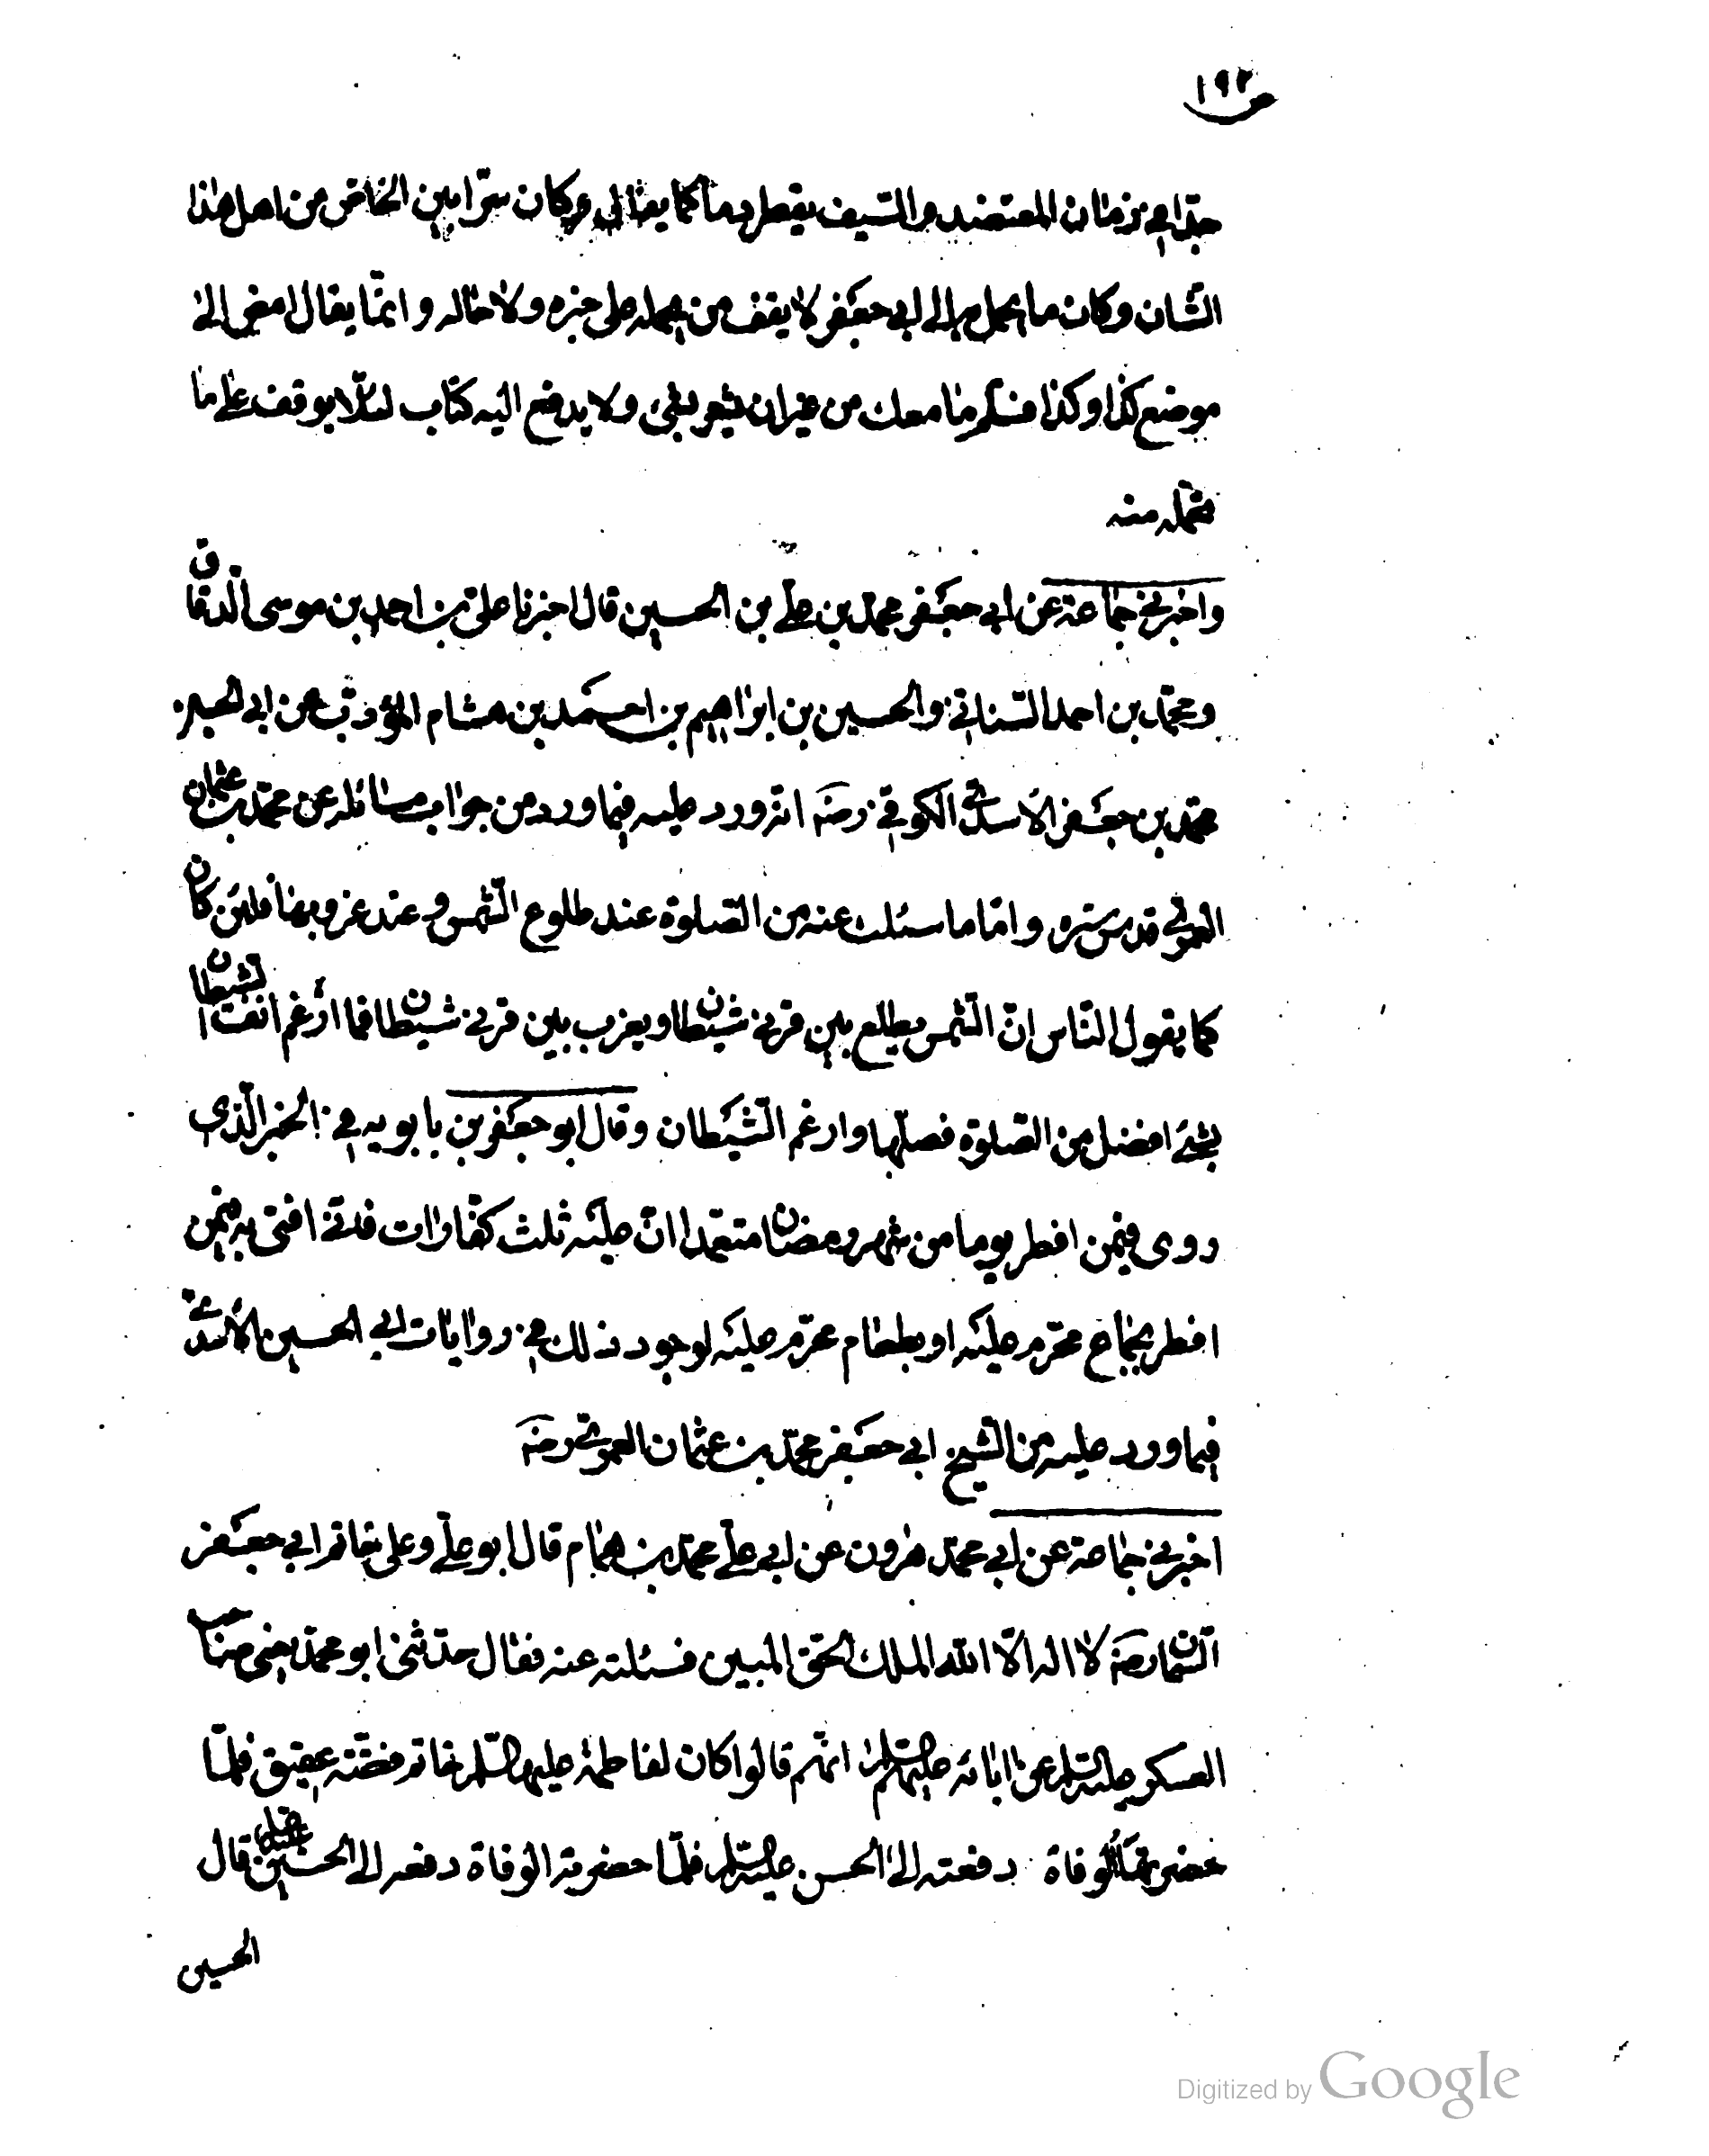 ص ١٩٢
جدا في زمان المعتضد والسّيف يقطر دما كما يقال وكان سرّا بين الخاصّ من اهل هذا
الشّان وكان ما يحمل به الى ابي جعفر لا يقف من يحمله على خبره ولا حاله وانّما يقال امض الى
موضع كذا وكذا فسلّم ما معك من غير ان يشعر بشئ ولا يدفع اليه كتاب لئلّا يوقف على ما
تحمله منه
واخبرني جماعة عن ابي جعفر محمّد بن علي بن الحسين قال اخبرنا علي بن احمد بن موسى الدّقاق
ومحمّد بن احمد السّناني والحسين بن ابراهيم بن احمد بن هشام المؤدّب عن ابي الحسين
محمّد بن جعفر الأسدي الكوفي رضه انّه ورد عليه فيما ورد من جواب مسائله عن محمّد بن عثمان
العمري قدس سره وامّا ما سئلت عنه من الصّلوة عند طلوع الشّمس وعند غروبها فلئن كان
كما يقول النّاس انّ الشّمس يطلع بين قرني شيطان ويغرب بين قرني شيطان فما ارغم انف الشيطان
بشئ افضل من الصّلوة فصلّها وارغم الشّيطان وقال ابو جعفر بن بابويه في الخبر الّذي
روى فيمن افطر يوما من شهر رمضان متعمّدا انّ عليه ثلث كفّارات فانّي افتى به فيمن
افطر بجماع محرّم عليه او بطعام محرّم عليه لوجود ذلك في روايات ابي الحسين الأسدي
فيما ورد عليه من الشّيخ ابي جعفر محمّد بن عثمان العمري رضه
اخبرني جماعة عن ابي محمّد هرون عن ابي علي محمّد بن همام قال ابو علي وعلى خاتم ابي جعفر
السّمان رضه لا اله الّا الله الملك الحق المبين فسئلته عنه فقال حدّثني ابو محمّد يعني صاحب
العسكر عليه السّلم عن ابائه عليهم السّلم انّهم قالوا كان لفاطمة عليها السّلم خاتم فضّته عقيق فلمّا
حضرتها الوفاة دفعته الى الحسن عليه السّلم فلمّا حضرته الوفاة دفعه الى الحسين عليه قال
الحسين
Digitized by Google